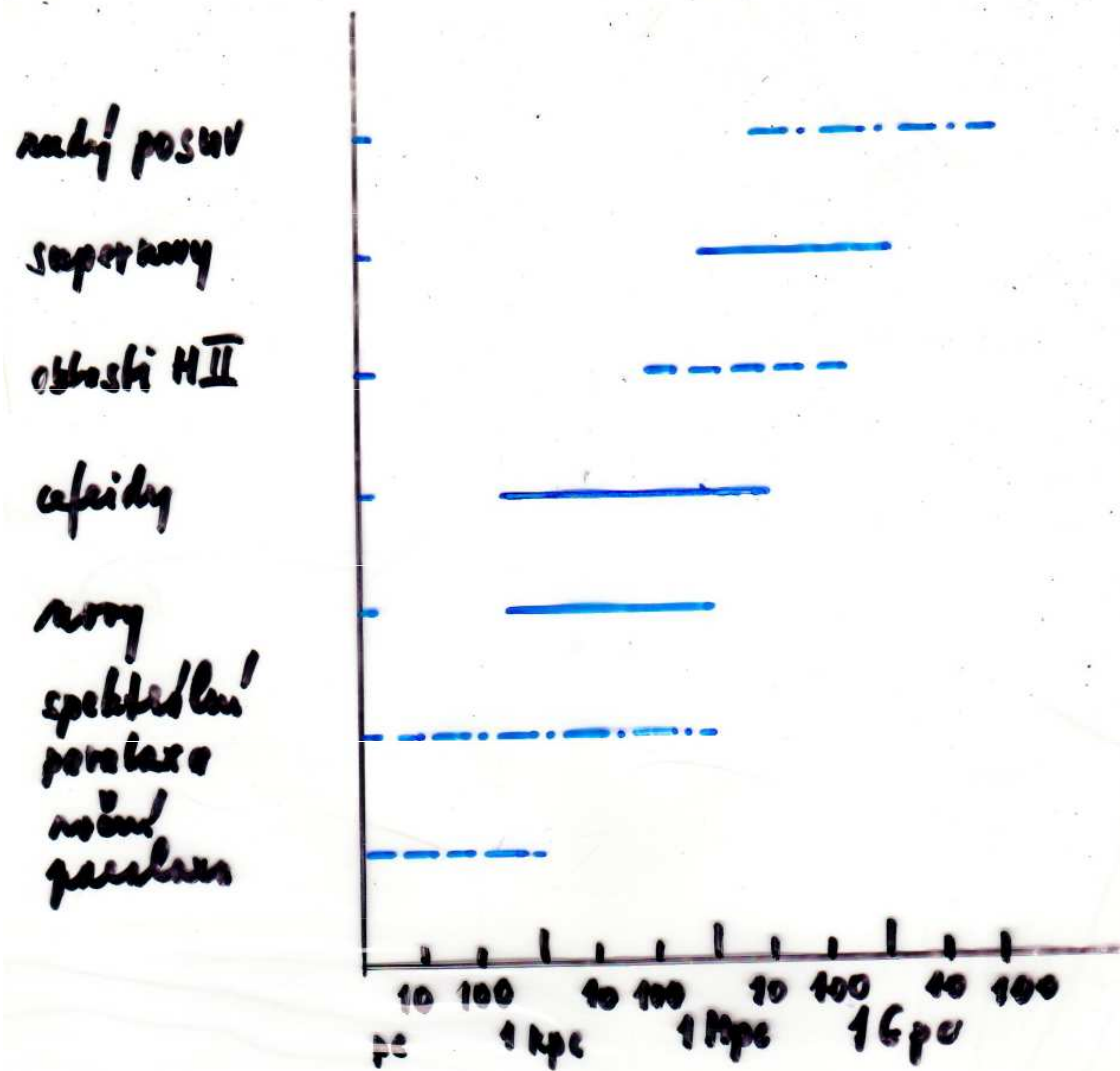 rudý posuv
supernovy
oblasti HII
cefeidy
novy
spektrální
paralaxa
roční
paralaxa
10 100 10 100 10 100 10 100
pc 1 kpc 1 Mpc 1 Gpc